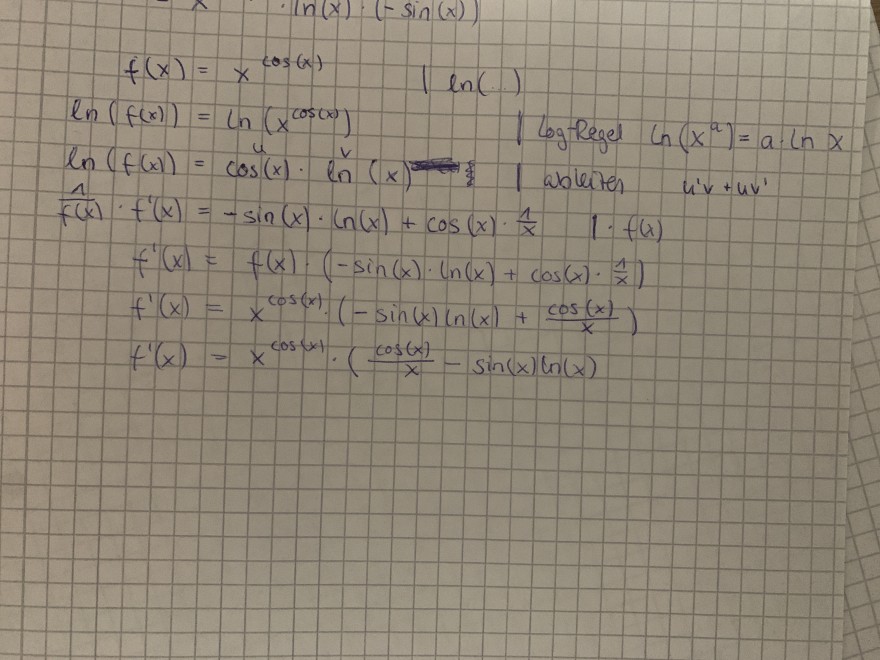 x · ln(x) · (-sin(x))
f(x) = x^cos(x) | ln(...)
ln(f(x)) = ln(x^cos(x)) | Log-Regel ln(x^a) = a · ln x
u v
ln(f(x)) = cos(x) · ln(x) | ableiten u'v + uv'
1/f(x) · f'(x) = -sin(x) · ln(x) + cos(x) · 1/x | · f(x)
f'(x) = f(x) · (-sin(x) · ln(x) + cos(x) · 1/x)
f'(x) = x^cos(x) · (-sin(x) ln(x) + cos(x)/x)
f'(x) = x^cos(x) · (cos(x)/x - sin(x) ln(x)